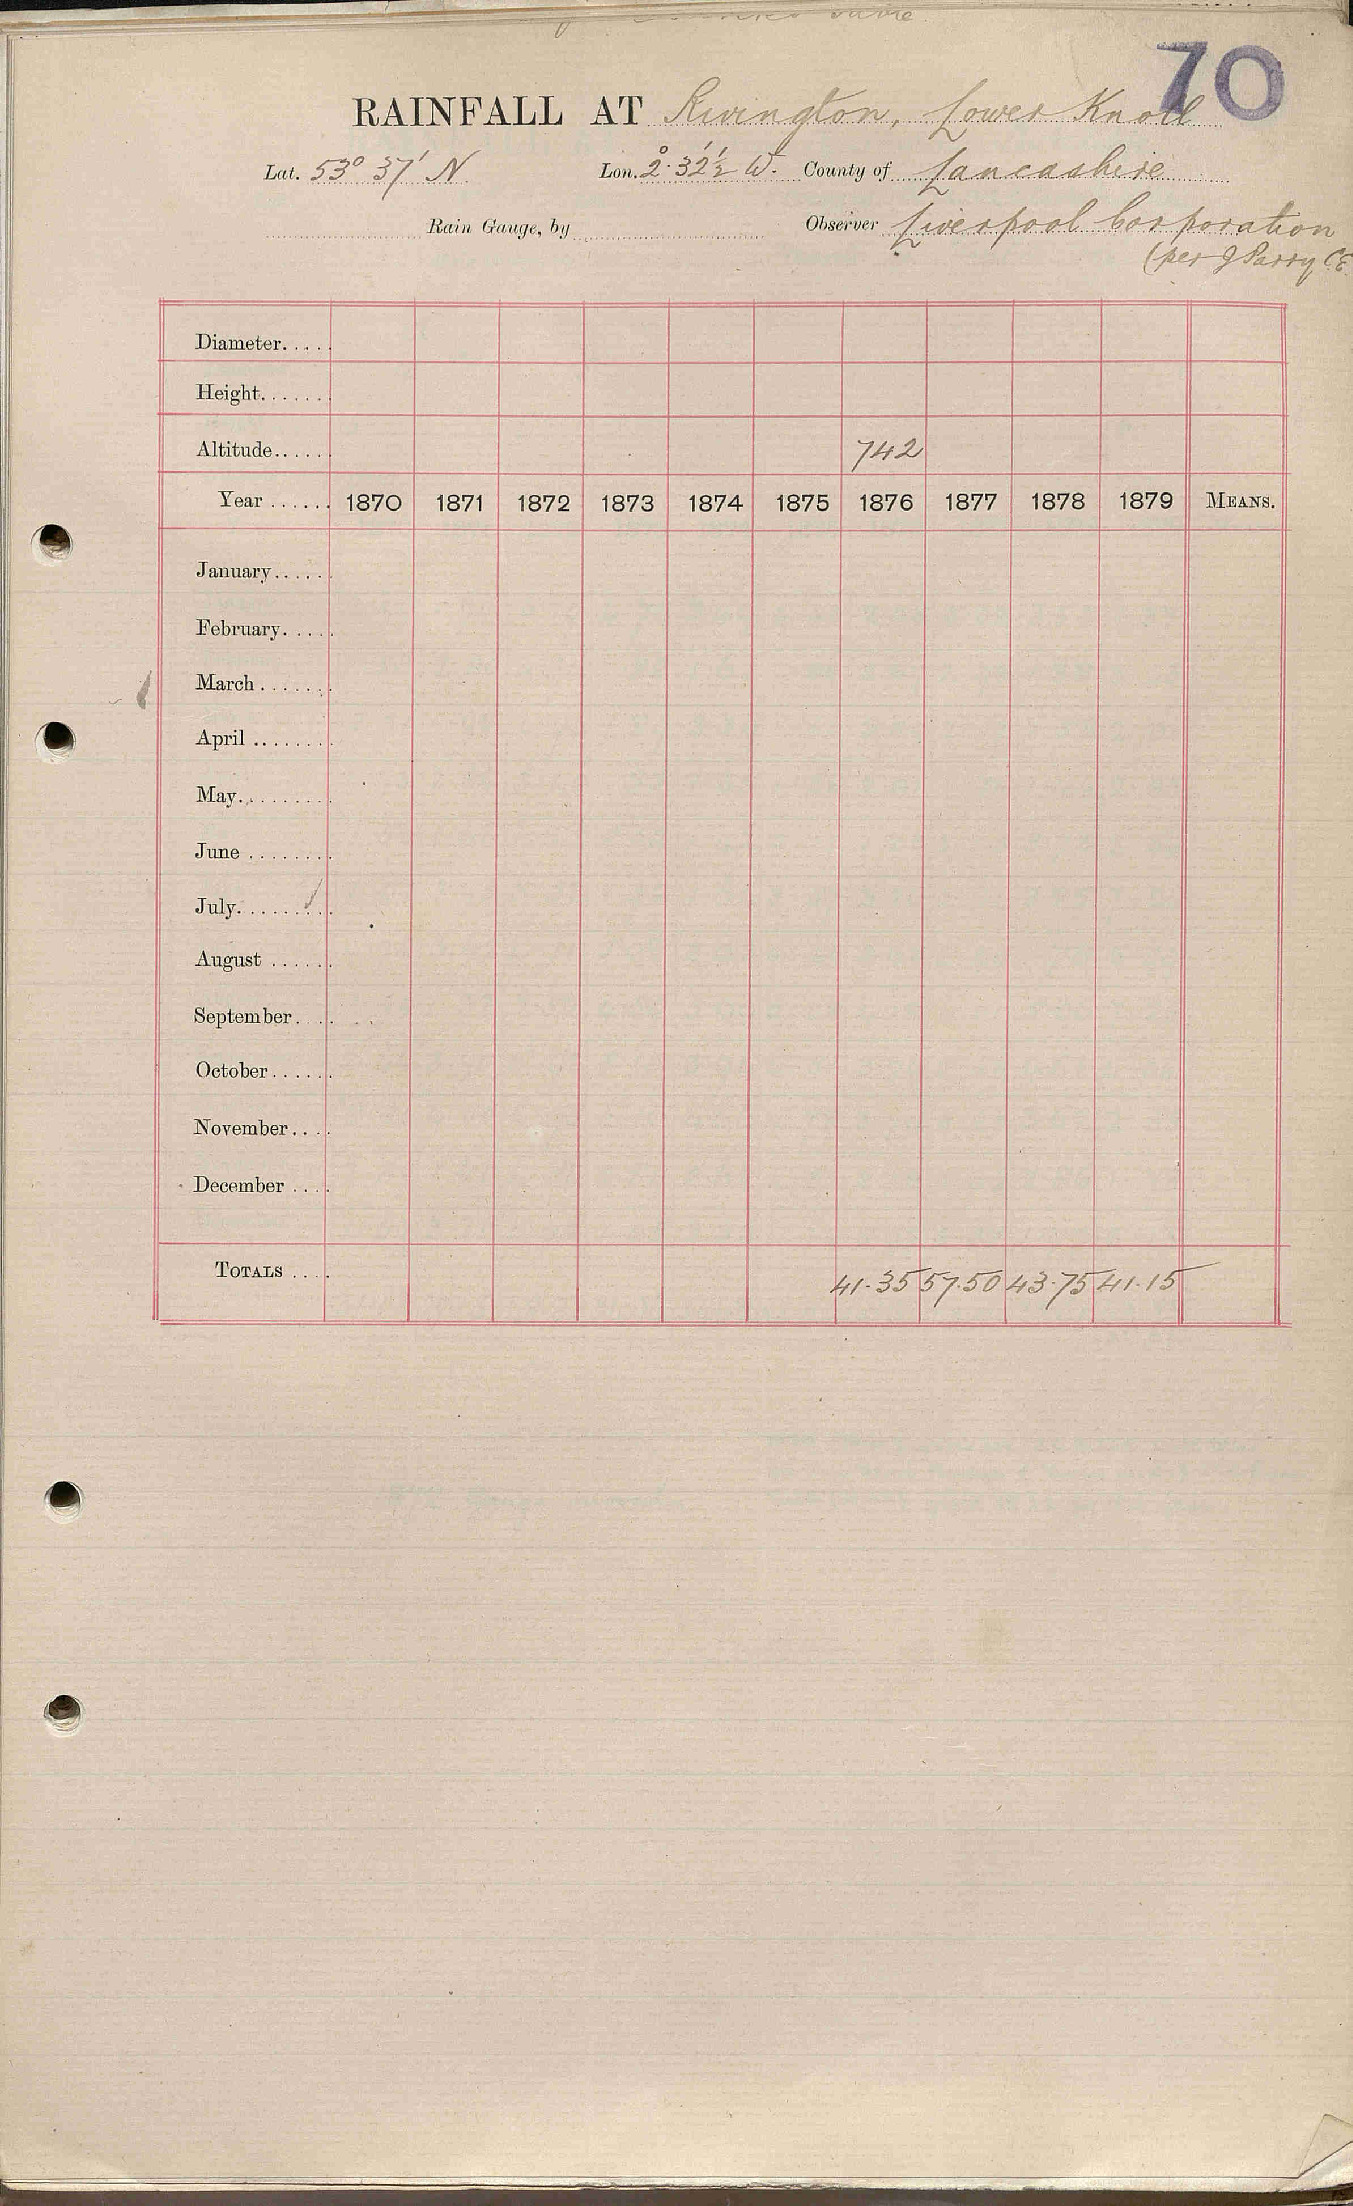 70
RAINFALL AT Rivington, Lower Knoll
Lat. 53° 37' N Lon. 2° 32'½ W. County of Lancashire
Rain Gauge, by Observer Liverpool Corporation
(per J Parry C.E.
Diameter.....
Height.......
Altitude...... 742
Year ...... 1870 1871 1872 1873 1874 1875 1876 1877 1878 1879 MEANS.
January......
February.....
March .......
April ........
May.........
June ........
July.........
August ......
September....
October......
November....
December ....
TOTALS .... 41.35 57.50 43.75 41.15